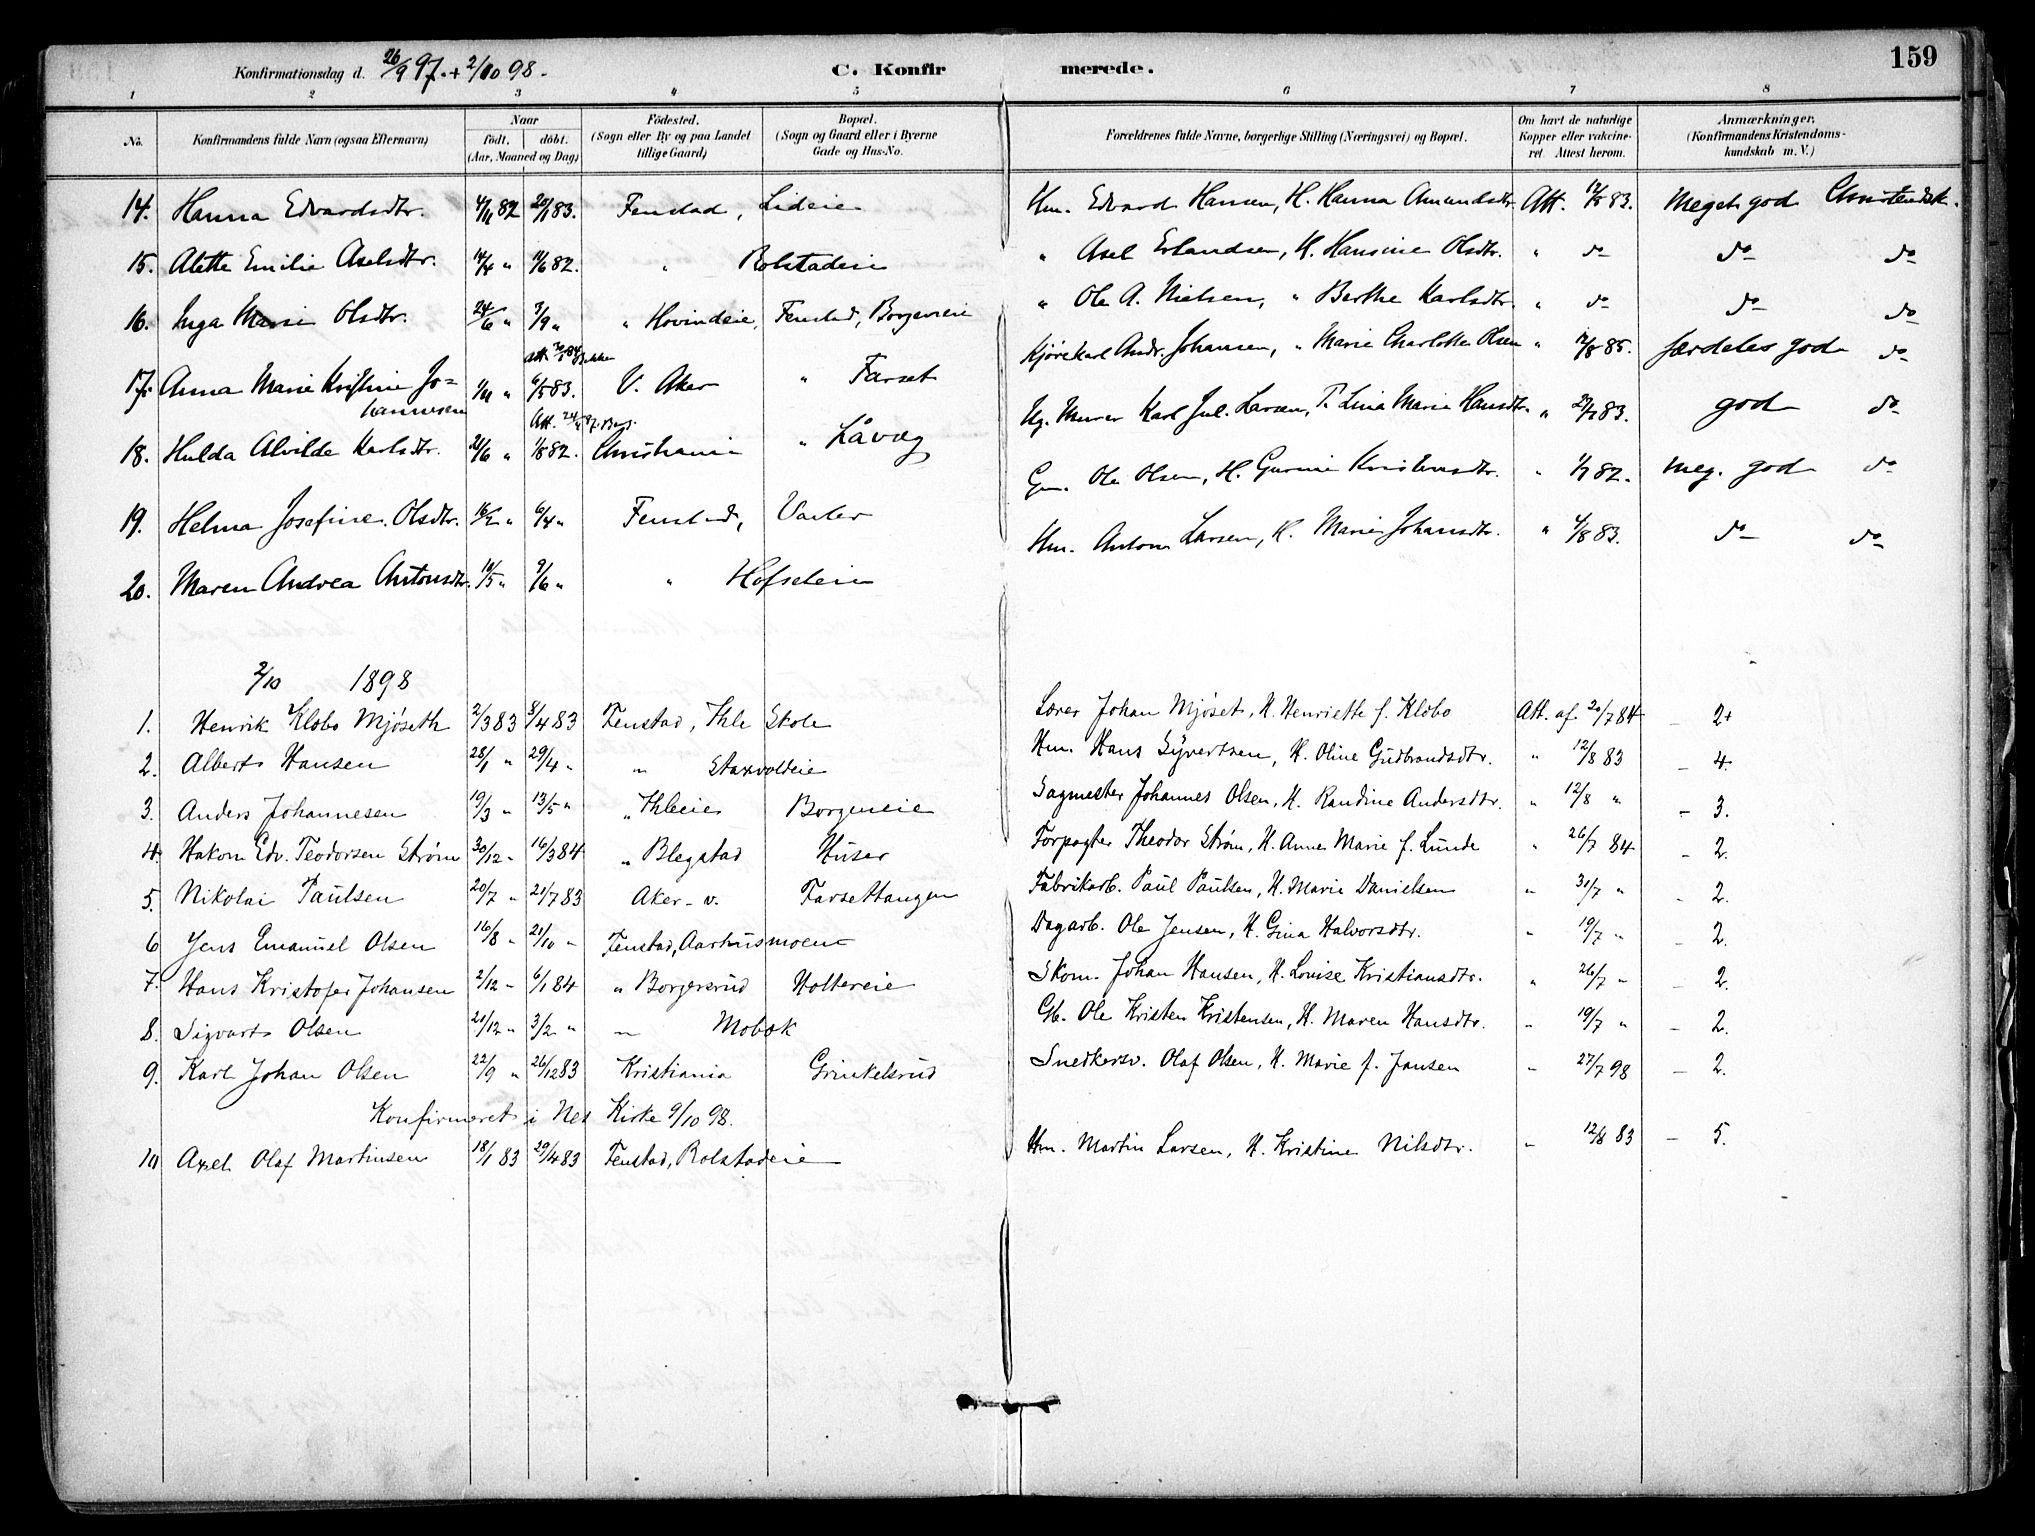 Konfirmationsdag d. 26/9 97. + 2/10 98. C. Konfirmerede. 159
1 2 3 4 5 6 7 8
No. Konfirmandens fulde Navn (ogsaa Efternavn) Naar födt. döbt. (Aar, Maaned og Dag) Födested. (Sogn eller By og paa Landet tillige Gaard) Bopæl. (Sogn og Gaard eller i Byerne Gade og Hus-No. Forældrenes fulde Navne, borgerlige Stilling (Næringsvei) og Bopæl. Om havt de naturlige Kopper eller vakcineret. Attest herom. Anmærkninger. (Konfirmandens Kristendomskundskab m. V.)
14. Hanna Edvardsdtr. 82 20/1 83. Fenstad, Lideie Hm. Edvard Hansen, H. Hanna Amundsdtr Att. 83. Meget god Christendsk.
15. Alette Emilie Axelsdtr. 14/4 " 11/6 82. " Rolstadeie " Axel Erlandsen, H. Hansine Olsdtr. " do do do
16. Inga Marie Olsdtr. 24/6 " 3/9 " " Hovindeie, Fenstad, Borgeneie " Ole A. Nielsen, " Berthe Karlsdtr. " do do do
17. Anna Marie Kristine Johannesen " 6/5 83. V. Aker " Farset Kjörekarl Andr. Johansen, " Marie Charlotte Olsen " 85. særdeles god do
18. Hulda Alvilde Karlsdtr. 21/6 " 1/8 82. Christiania " Låvæg Ug. Murer Karl Jul. Larsen, P. Lina Marie Hansdtr. " 83. god do
19. Helma Josefine Olsdtr. 16/2 " 6/4 " Fenstad, Varler Gm. Ole Olsen, H. Gurine Kristensdtr. " 82. meg. god do
20. Maren Andrea Antonsdtr. 14/5 " 9/6 " " Hofseteie Hm. Anton Larsen, H. Marie Johansdtr. " 4/8 83. do do
2/10 1898
1. Henrik Klobo Mjöseth 2/3 83 8/4 83 Fenstad, Ihle Skole Lærer Johan Mjöset, H. Henriette f. Klobo Att. af 20/7 84 - 2+
2. Albert Hansen 28/1 " 29/4 " " Staxvoldeie Hm. Hans Syvertsen, H. Oline Gudbrandsdtr. " 12/8 83 - 4.
3. Anders Johannesen 19/3 " 13/5 " " Ihleeie Borgeneie Sagmester Johannes Olsen, H. Randine Andersdtr. " 12/8 " - 3.
4. Hakon Edv. Teodorsen Ström 30/12 " 16/3 84 " Blegstad Huser Forpagter Theodor Ström, H. Anne Marie f. Lunde " 26/7 84 - 2.
5. Nikolai Paulsen 20/7 " 21/7 83 Aker - v. Farsettangen Fabrikarb. Paul Paulsen, H. Marie Danielsen " 31/7 " - 2.
6 Jens Emanuel Olsen 16/8 " 21/10 " Fenstad, Aarhusmoen Dagarb. Ole Jensen, H. Gina Halvorsdtr. " 19/7 " - 2.
7. Hans Kristofer Johansen 2/12 " 6/1 84 " Borgersrud Holtereie Skom. Johan Hansen, H. Louise Kristiansdtr. " 26/7 " - 2.
8. Sigvart Olsen 21/12 " 3/2 " " Mobæk Gb. Ole Kristen Kristensen, H. Maren Hansdtr. " 19/7 " - 2.
9. Karl Johan Olsen 22/9 " 26/12 83 Kristiania Grinkelsrud Snedkersv. Olaf Olsen, H. Marie f. Jansen " 27/7 98 - 2.
Konfirmeret i Nes Kirke 9/10 98.
10 Axel Olaf Martinsen 18/1 83 29/4 83 Fenstad, Rolstadeie Hm. Martin Larsen, H. Kristine Nilsdtr. " 12/8 83 - 5.